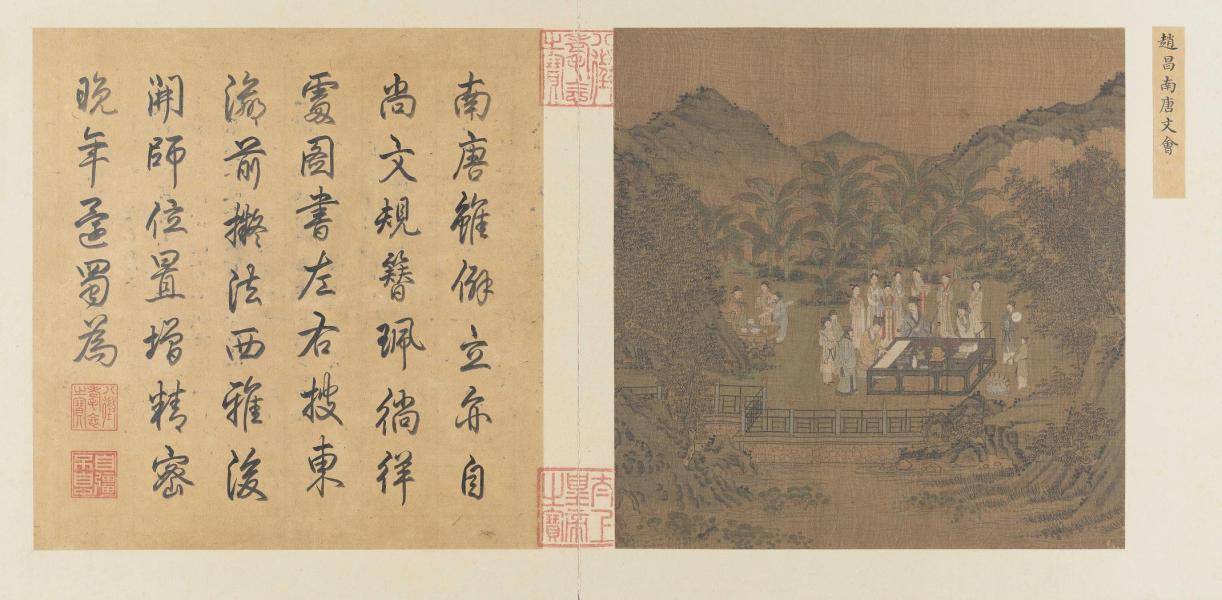 趙昌南唐文會
八徵耄念之寶
太上皇帝之寶
南唐雖僻立亦自
尚文規簪珮徜徉
處圖書左右披東
瀛前擬法西雅後
開師位置增精密
晚年蜀為
八徵耄念之寶
自彊不息